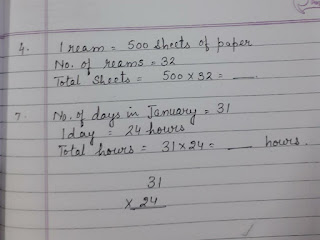 4. 1 ream = 500 sheets of paper
No. of reams = 32
Total Sheets = 500 × 32 = ____.
7. No. of days in January = 31
1 day = 24 hours
Total hours = 31 × 24 = ____ hours.
31
× 24